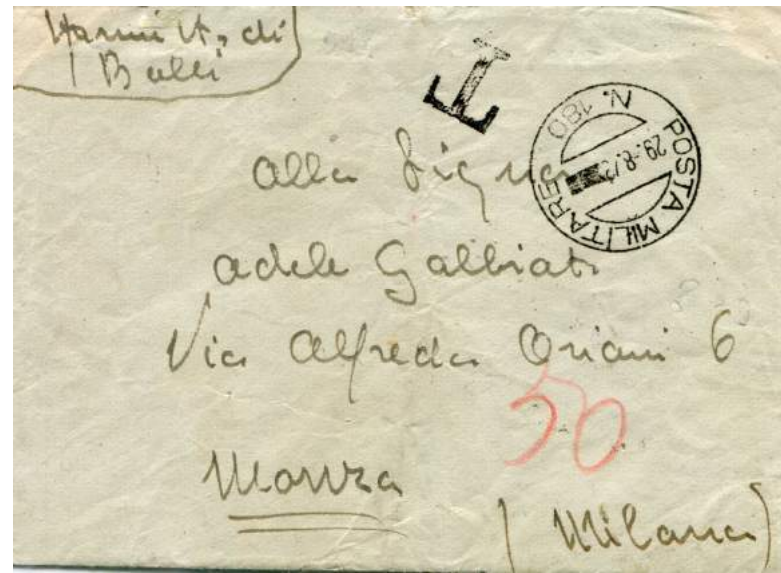 di
T
POSTA MILITARE
N. 180
29.8.43
alla Sigra
adele Galbiati
Via Alfredo Oriani 6
50
Monza
(Milano)